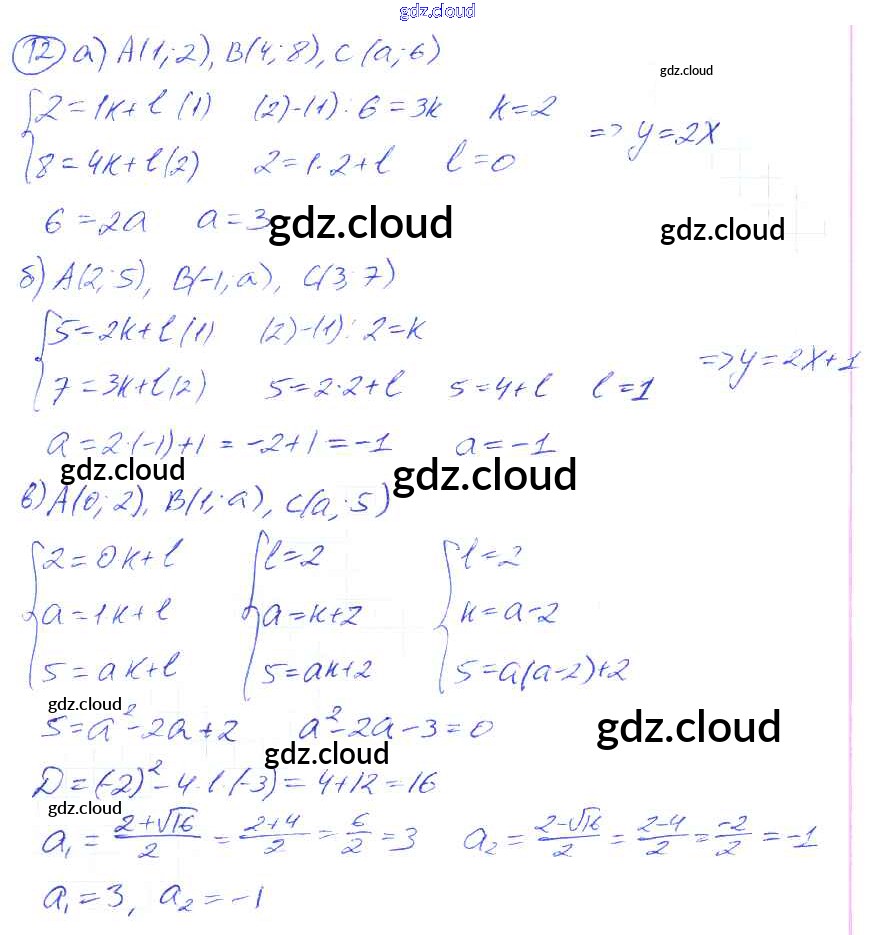 gdz.cloud
12 а) A(1; 2), B(4; 8), C(a; 6)
gdz.cloud
{2=1k+l (1) (2)-(1): 6=3k k=2
=> y=2x
8=4k+l (2) 2=1·2+l l=0
6=2a a=3
gdz.cloud gdz.cloud
б) A(2; 5), B(-1; a), C(3; 7)
{5=2k+l (1) (2)-(1): 2=k
=> y=2x+1
7=3k+l (2) 5=2·2+l 5=4+l l=1
a=2·(-1)+1=-2+1=-1 a=-1
gdz.cloud gdz.cloud
в) A(0; 2), B(1; a), C(a; 5)
{2=0k+l {l=2 {l=2
a=1k+l a=k+2 k=a-2
5=ak+l 5=ak+2 5=a(a-2)+2
gdz.cloud
5=a²-2a+2 a²-2a-3=0
gdz.cloud
gdz.cloud
D=(-2)²-4·1·(-3)=4+12=16
gdz.cloud
a₁=(2+√16)/2=(2+4)/2=6/2=3 a₂=(2-√16)/2=(2-4)/2=-2/2=-1
a₁=3, a₂=-1